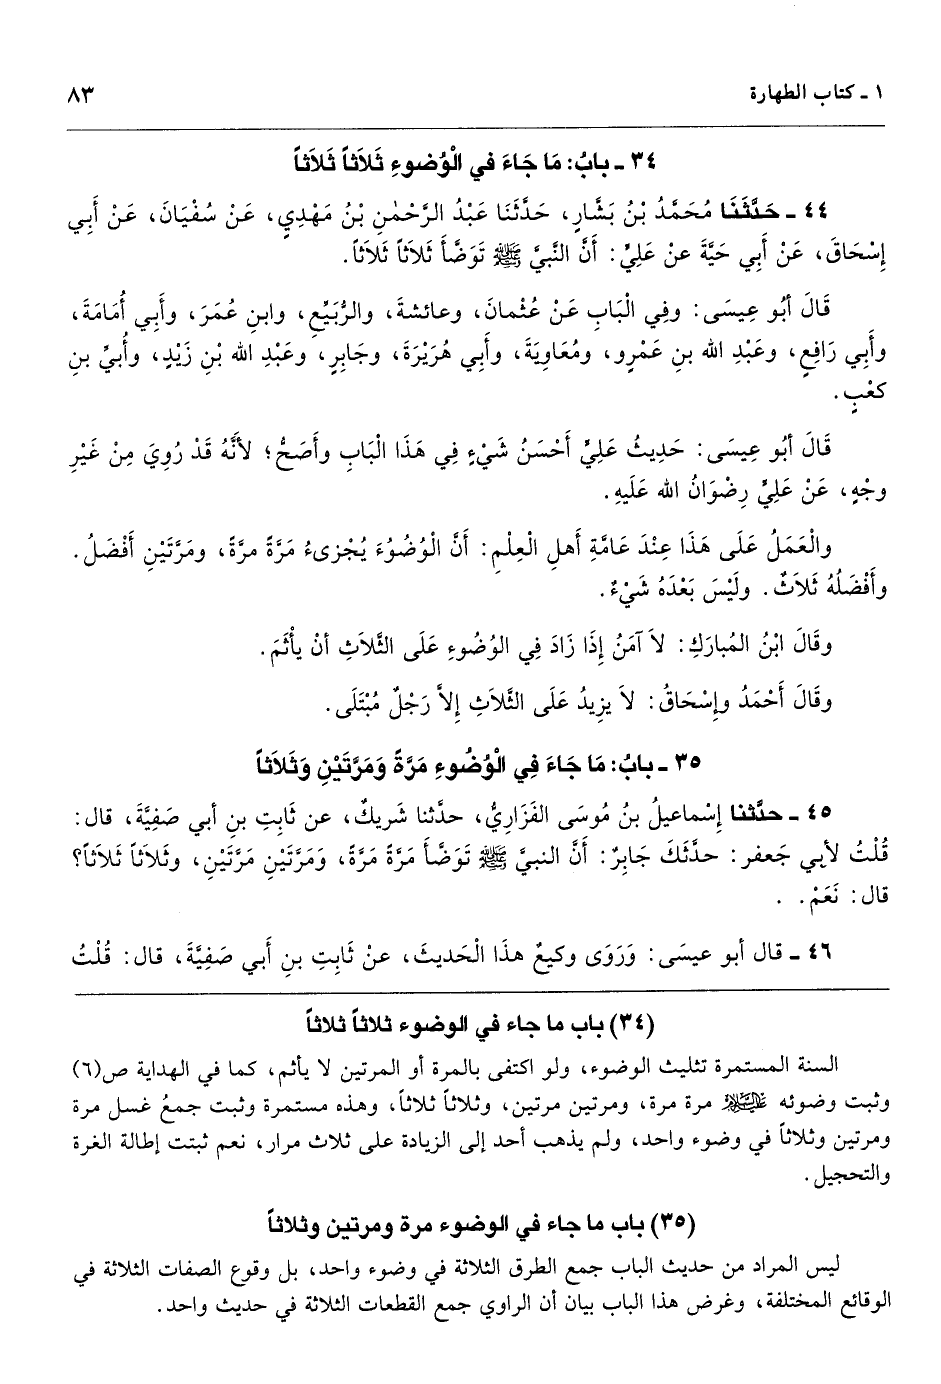 ١ ـ كتاب الطهارة
٨٣
٣٤ ـ بابُ: مَا جَاءَ في الْوُضوءِ ثَلاَثاً ثَلاَثاً
٤٤ ـ حَدَّثَنَا مُحَمَّدُ بْنُ بَشَّارٍ، حَدَّثَنَا عَبْدُ الرَّحْمٰنِ بْنُ مَهْدِيٍ، عَنْ سُفْيَانَ، عَنْ أَبِي
إِسْحَاقَ، عَنْ أَبِي حَيَّةَ عنْ عَلِيٍّ: أَنَّ النَّبِيَّ ﷺ تَوَضَّأَ ثَلاَثاً ثَلاَثاً.
قَالَ أبُو عِيسَى: وفِي الْبَابِ عَنْ عُثْمانَ، وعائشةَ، والرُّبَيِّعِ، وابنِ عُمَرَ، وأَبِي أُمَامَةَ،
وأَبِي رَافِعٍ، وعَبْدِ الله بنِ عَمْرٍو، ومُعَاوِيَةَ، وأَبِي هُرَيْرَةَ، وجَابِرٍ، وعَبْدِ الله بْنِ زَيْدٍ، وأُبيِّ بنِ
كعْبٍ.
قَالَ أبُو عِيسَى: حَدِيثُ عَلِيٍّ أَحْسَنُ شَيْءٍ فِي هَذَا الْبَابِ وأَصَحُّ؛ لأنَّهُ قَدْ رُوِيَ مِنْ غَيْرِ
وجْهٍ، عَنْ عَلِيٍّ رِضْوَانُ الله عَلَيهِ.
والْعَمَلُ عَلَى هَذَا عِنْدَ عَامَّةِ أهلِ العِلْمِ: أَنَّ الْوُضُوُءَ يُجْزِىءُ مَرَّةً مرَّةً، ومَرَّتَيْنِ أَفْضَلُ.
وأَفْضَلُهُ ثَلاَثٌ. ولَيْسَ بَعْدَهُ شَيْءٌ.
وقَالَ ابْنُ المُبارَكِ: لاَ آمَنُ إِذَا زَادَ فِي الوُضُوءِ عَلَى الثَّلاَثِ أنْ يأْثَمَ.
وقَالَ أَحْمَدُ وإِسْحَاقُ: لاَ يزِيدُ عَلَى الثَّلاَثِ إِلاَّ رَجُلٌ مُبْتَلَى.
٣٥ ـ بابُ: مَا جَاءَ فِي الْوُضُوءِ مَرَّةً وَمَرَّتَيْنِ وَثَلاَثاً
٤٥ ـ حدَّثنا إِسْماعيلُ بنُ مُوسَى الفَزَاريُّ، حدَّثنا شَريكٌ، عن ثَابِتِ بنِ أبي صَفِيَّةَ، قال:
قُلْتُ لأبي جَعفر: حدَّثَكَ جَابِرٌ: أَنَّ النبيَّ ﷺ تَوَضَّأَ مَرَّةً مَرَّةً، وَمَرَّتَيْنِ مَرَّتَيْنِ، وثَلاثاً ثَلاَثاً؟
قال: نَعَمْ.
٤٦ ـ قال أبو عيسَى: وَرَوَى وكيعٌ هذَا الْحَديثَ، عنْ ثَابِتِ بنِ أَبي صَفِيَّةَ، قال: قُلْتُ
(٣٤) باب ما جاء في الوضوء ثلاثاً ثلاثاً
السنة المستمرة تثليث الوضوء، ولو اكتفى بالمرة أو المرتين لا يأثم، كما في الهداية ص(٦)
وثبت وضوئه عليه السلام مرة مرة، ومرتين مرتين، وثلاثاً ثلاثاً، وهذه مستمرة وثبت جمعُ غسل مرة
ومرتين وثلاثاً في وضوء واحد، ولم يذهب أحد إلى الزيادة على ثلاث مرار، نعم ثبتت إطالة الغرة
والتحجيل.
(٣٥) باب ما جاء في الوضوء مرة ومرتين وثلاثاً
ليس المراد من حديث الباب جمع الطرق الثلاثة في وضوء واحد، بل وقوع الصفات الثلاثة في
الوقائع المختلفة، وغرض هذا الباب بيان أن الراوي جمع القطعات الثلاثة في حديث واحد.